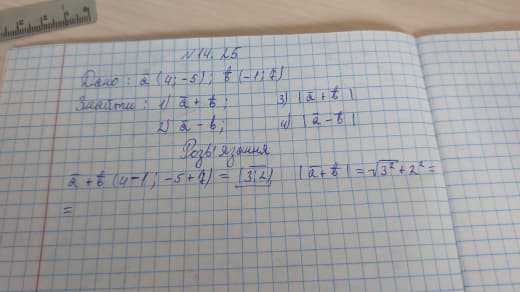 № 14.25
Дано: a̅ (4; -5); b̅ (-1; 7)
Знайти: 1) a̅ + b̅; 3) |a̅ + b̅|
2) a̅ - b̅; 4) |a̅ - b̅|
Розв'язання
a̅ + b̅ (4-1; -5+7) = (3; 2) |a̅ + b̅| = √3² + 2² =
=